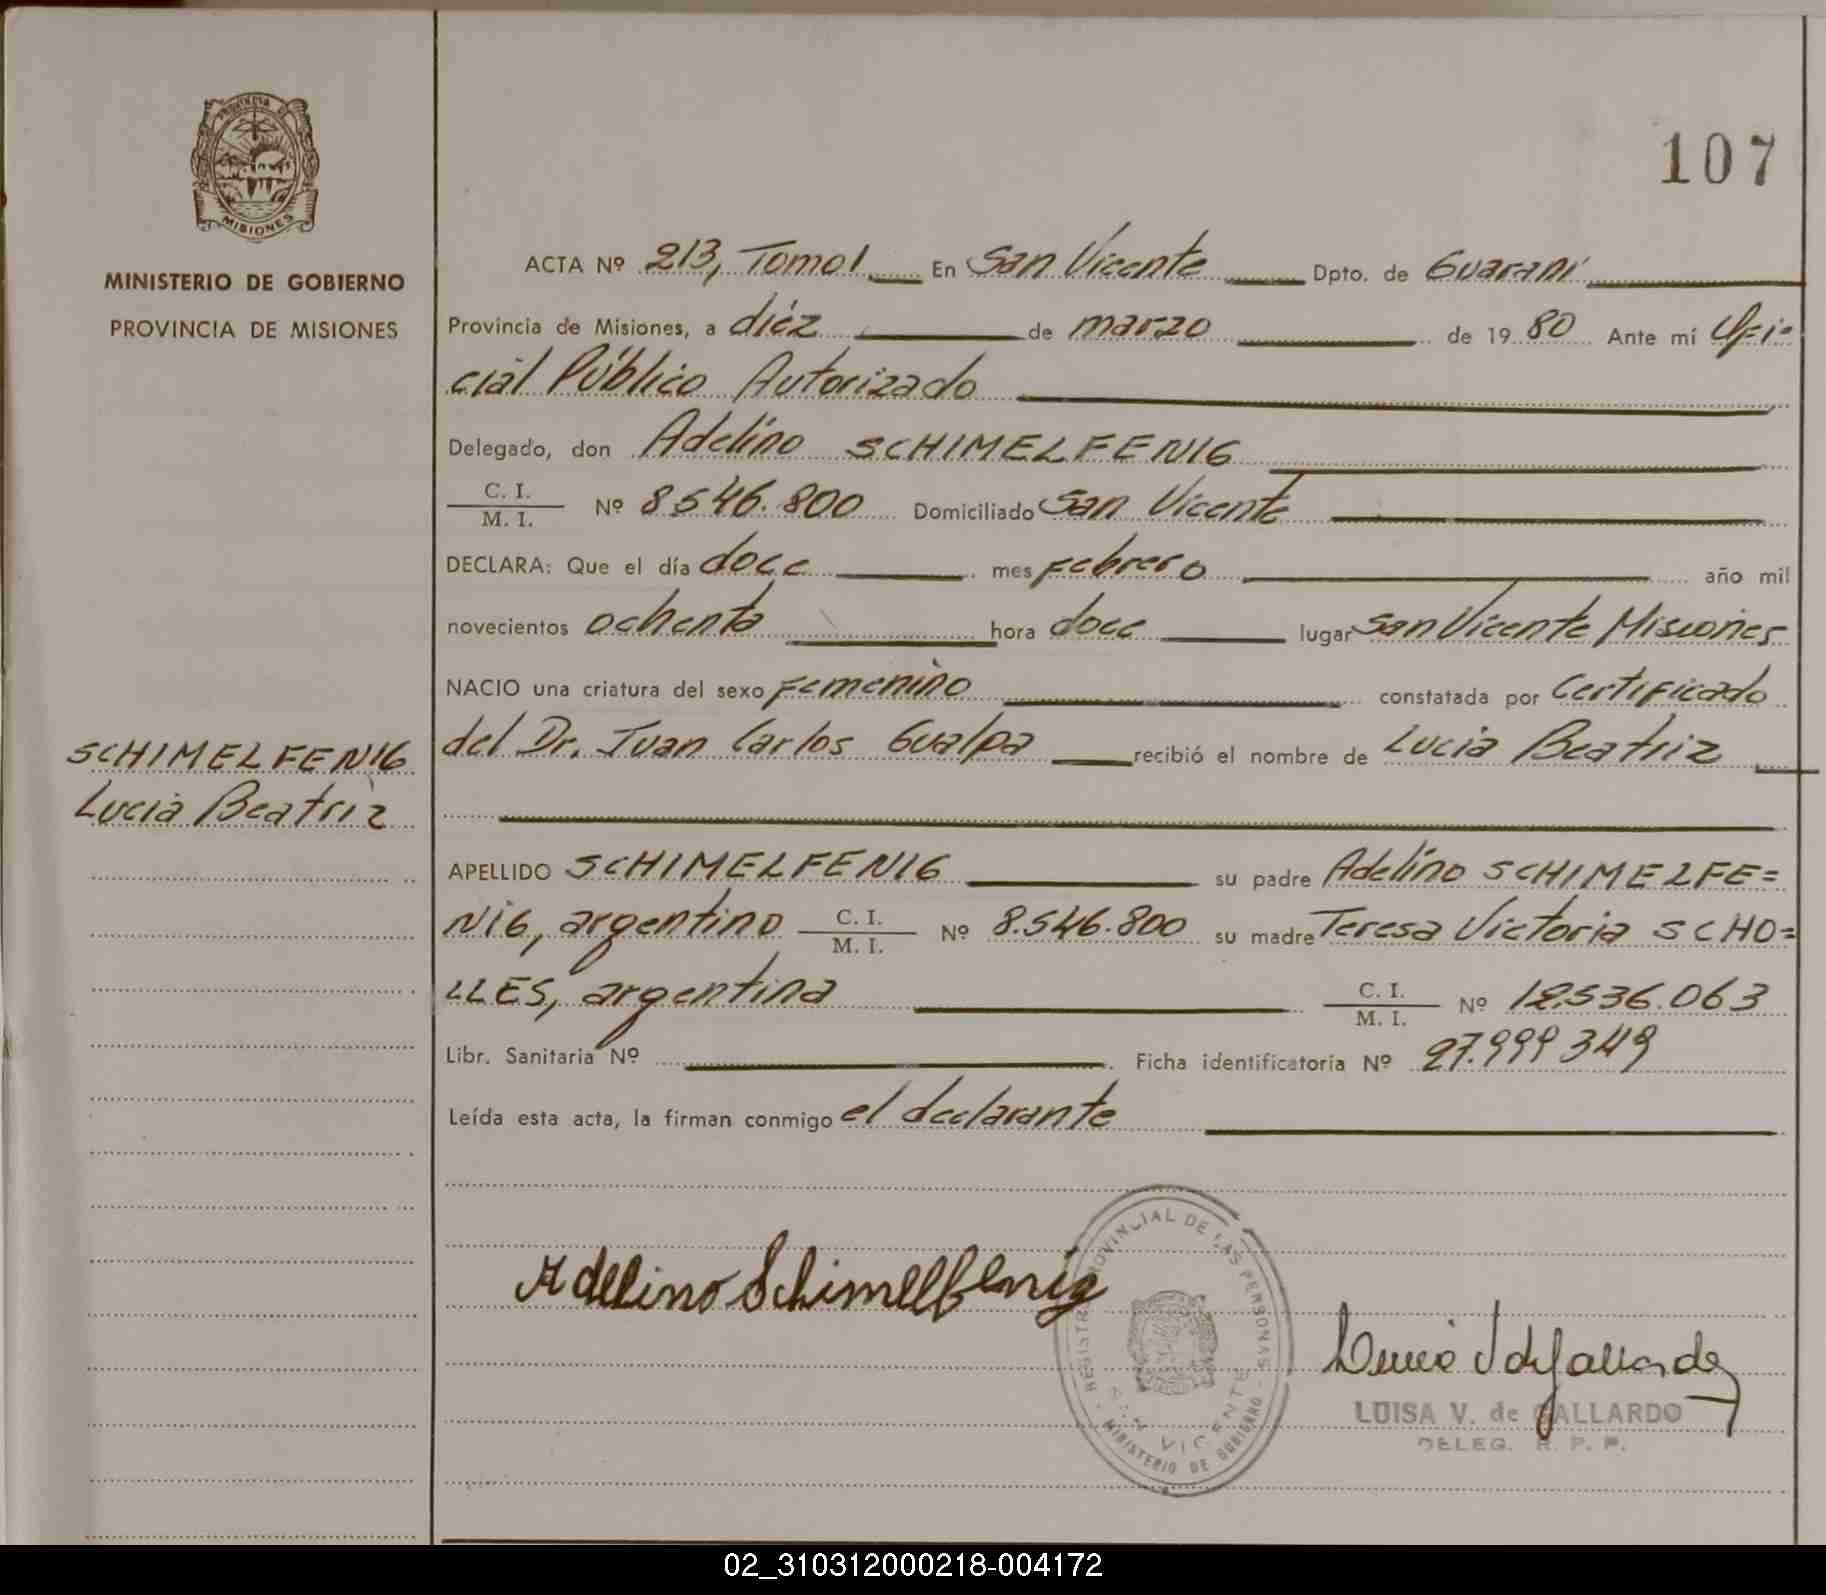 PROVINCIA DE
MISIONES
MINISTERIO DE GOBIERNO
PROVINCIA DE MISIONES
107
ACTA Nº 213, Tomo I En San Vicente Dpto. de Guaraní
Provincia de Misiones, a diéz de marzo de 19 80 Ante mí Ofi=
cial Público Autorizado
Delegado, don Adelino SCHIMELFENIG
C. I.
M. I. Nº 8.546.800 Domiciliado San Vicente
DECLARA: Que el día doce mes Febrero año mil
novecientos ochenta hora doce lugar San Vicente Misiones
NACIO una criatura del sexo Femenino constatada por Certificado
del Dr. Juan Carlos Gualpa recibió el nombre de Lucia Beatriz
SCHIMELFENIG
Lucia Beatriz
APELLIDO SCHIMELFENIG su padre Adelino SCHIMELFE=
NIG, argentino C. I.
M. I. Nº 8.546.800 su madre Teresa Victoria SCHO=
LLES, argentina C. I.
M. I. Nº 12.536.063
Libr. Sanitaria Nº Ficha identificatoria Nº 27.999349
Leída esta acta, la firman conmigo el declarante
Adelino Schimelfenig
REGISTRO PROVINCIAL DE LAS PERSONAS
SAN VICENTE
MINISTERIO DE GOBIERNO
LUISA V. de GALLARDO
DELEG. R. P. P.
02_310312000218-004172